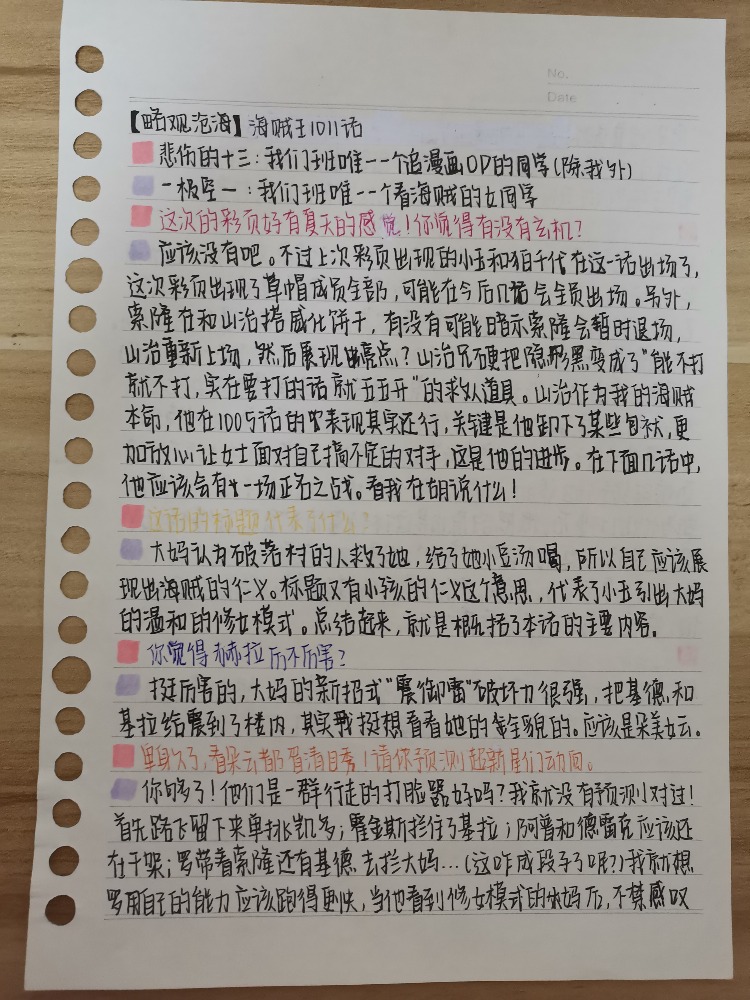 No.
Date
【略观沧海】海贼王1011话
悲伤的十三：我们班唯一一个追漫画OP的同学(除我外)
一极空一：我们班唯一一个看海贼的女同学
这次的彩页好有夏天的感觉！你觉得有没有玄机？
应该没有吧。不过上次彩页出现的小玉和狛千代在这一话出场了，
这次彩页出现了草帽成员全部，可能在今后几话会全员出场。另外，
索隆在和山治搭威化饼干，有没有可能暗示索隆会暂时退场，
山治重新上场，然后展现出亮点？山治兄硬把隐形黑变成了"能不打
就不打，实在要打的话就五五开"的救人道具。山治作为我的海贼
本命，他在1005话的表现其实还行，关键是他卸下了某些包袱，更
加放心让女士面对自己搞不定的对手，这是他的进步。在下面几话中，
他应该会有一场正名之战。看我在胡说什么！
这话的标题代表了什么？
大妈认为破落村的人救了她，给了她小豆汤喝，所以自己应该展
现出海贼的仁义。标题又有小孩的仁义这个意思，代表了小玉引出大妈
的温和的修女模式。总结起来，就是概括了本话的主要内容。
你觉得赫拉厉不厉害？
挺厉害的，大妈的新招式"震御雷"破坏力很强，把基德和
基拉给震到了楼内，其实我挺想看看她的全貌的。应该是朵美女云。
单身久了，看朵云都眉清目秀！请你预测超新星们动向。
你够了！他们是一群行走的打脸器好吗？我就没有预测对过！
首先路飞留下来单挑凯多；霍金斯拦住了基拉；阿普和德雷克应该还
在干架；罗带着索隆还有基德去拦大妈…(这咋成段子了呢？)我就想
罗用自己的能力应该跑得更快，当他看到修女模式的大妈后，不禁感叹